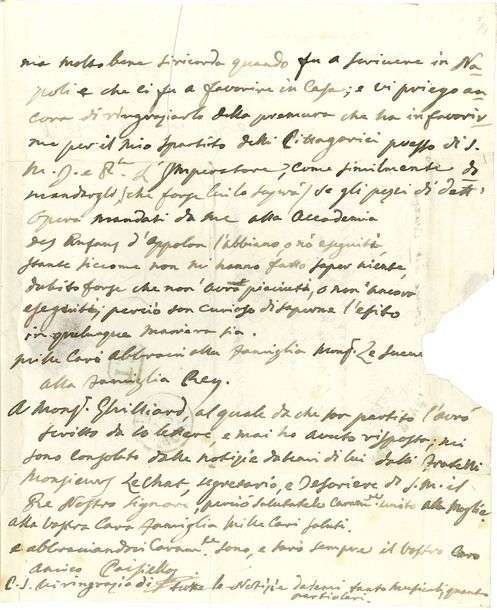 mia molto bene si ricorda quando fu a scrivere in Na=
poli e che ci fu a favorire in Casa; e vi priego an=
cora di ringraziarlo della premura che ha in favorir=
me per il mio spartito delli Pittagorici presso di S.
M. J. e R.le L'Imperatore, come similmente di
(che forse lui lo saprà) se gli pezzi di dett:
Opera mandati da me alla Accademia
des Enfans d'Appolon l'abbiano o nò eseguita
stante siccome non mi hanno fatto saper niente,
dubito forse che non piaciuta, o non ancora
eseguita, perciò son curioso di saperne l'esito
in qualunque maniera sia.
Mille Cari abbracci alla famiglia Monsr. Le Sueur
alla famiglia Rey.
A Monsr. Ghilliard, al quale da che son partito l'avrò
scritto da lettere, e mai ho avuto risposta; mi
sono consolato dalle notizie datemi di lui dalli Fratelli
Monsieur Lechat, segretario, e Tesoriere di S. M. il
Re Nostro Signore; perciò salutatelo Caram.te unito alla Moglie
alla vostra Cara famiglia mille Cari saluti.
e abbracciandovi Caram.te sono, e sarò sempre il vostro Caro
amico Paisiello
P. S. Vi ringrazio di tutte le Notizie datemi tanto Musicali, quanto
particolari.